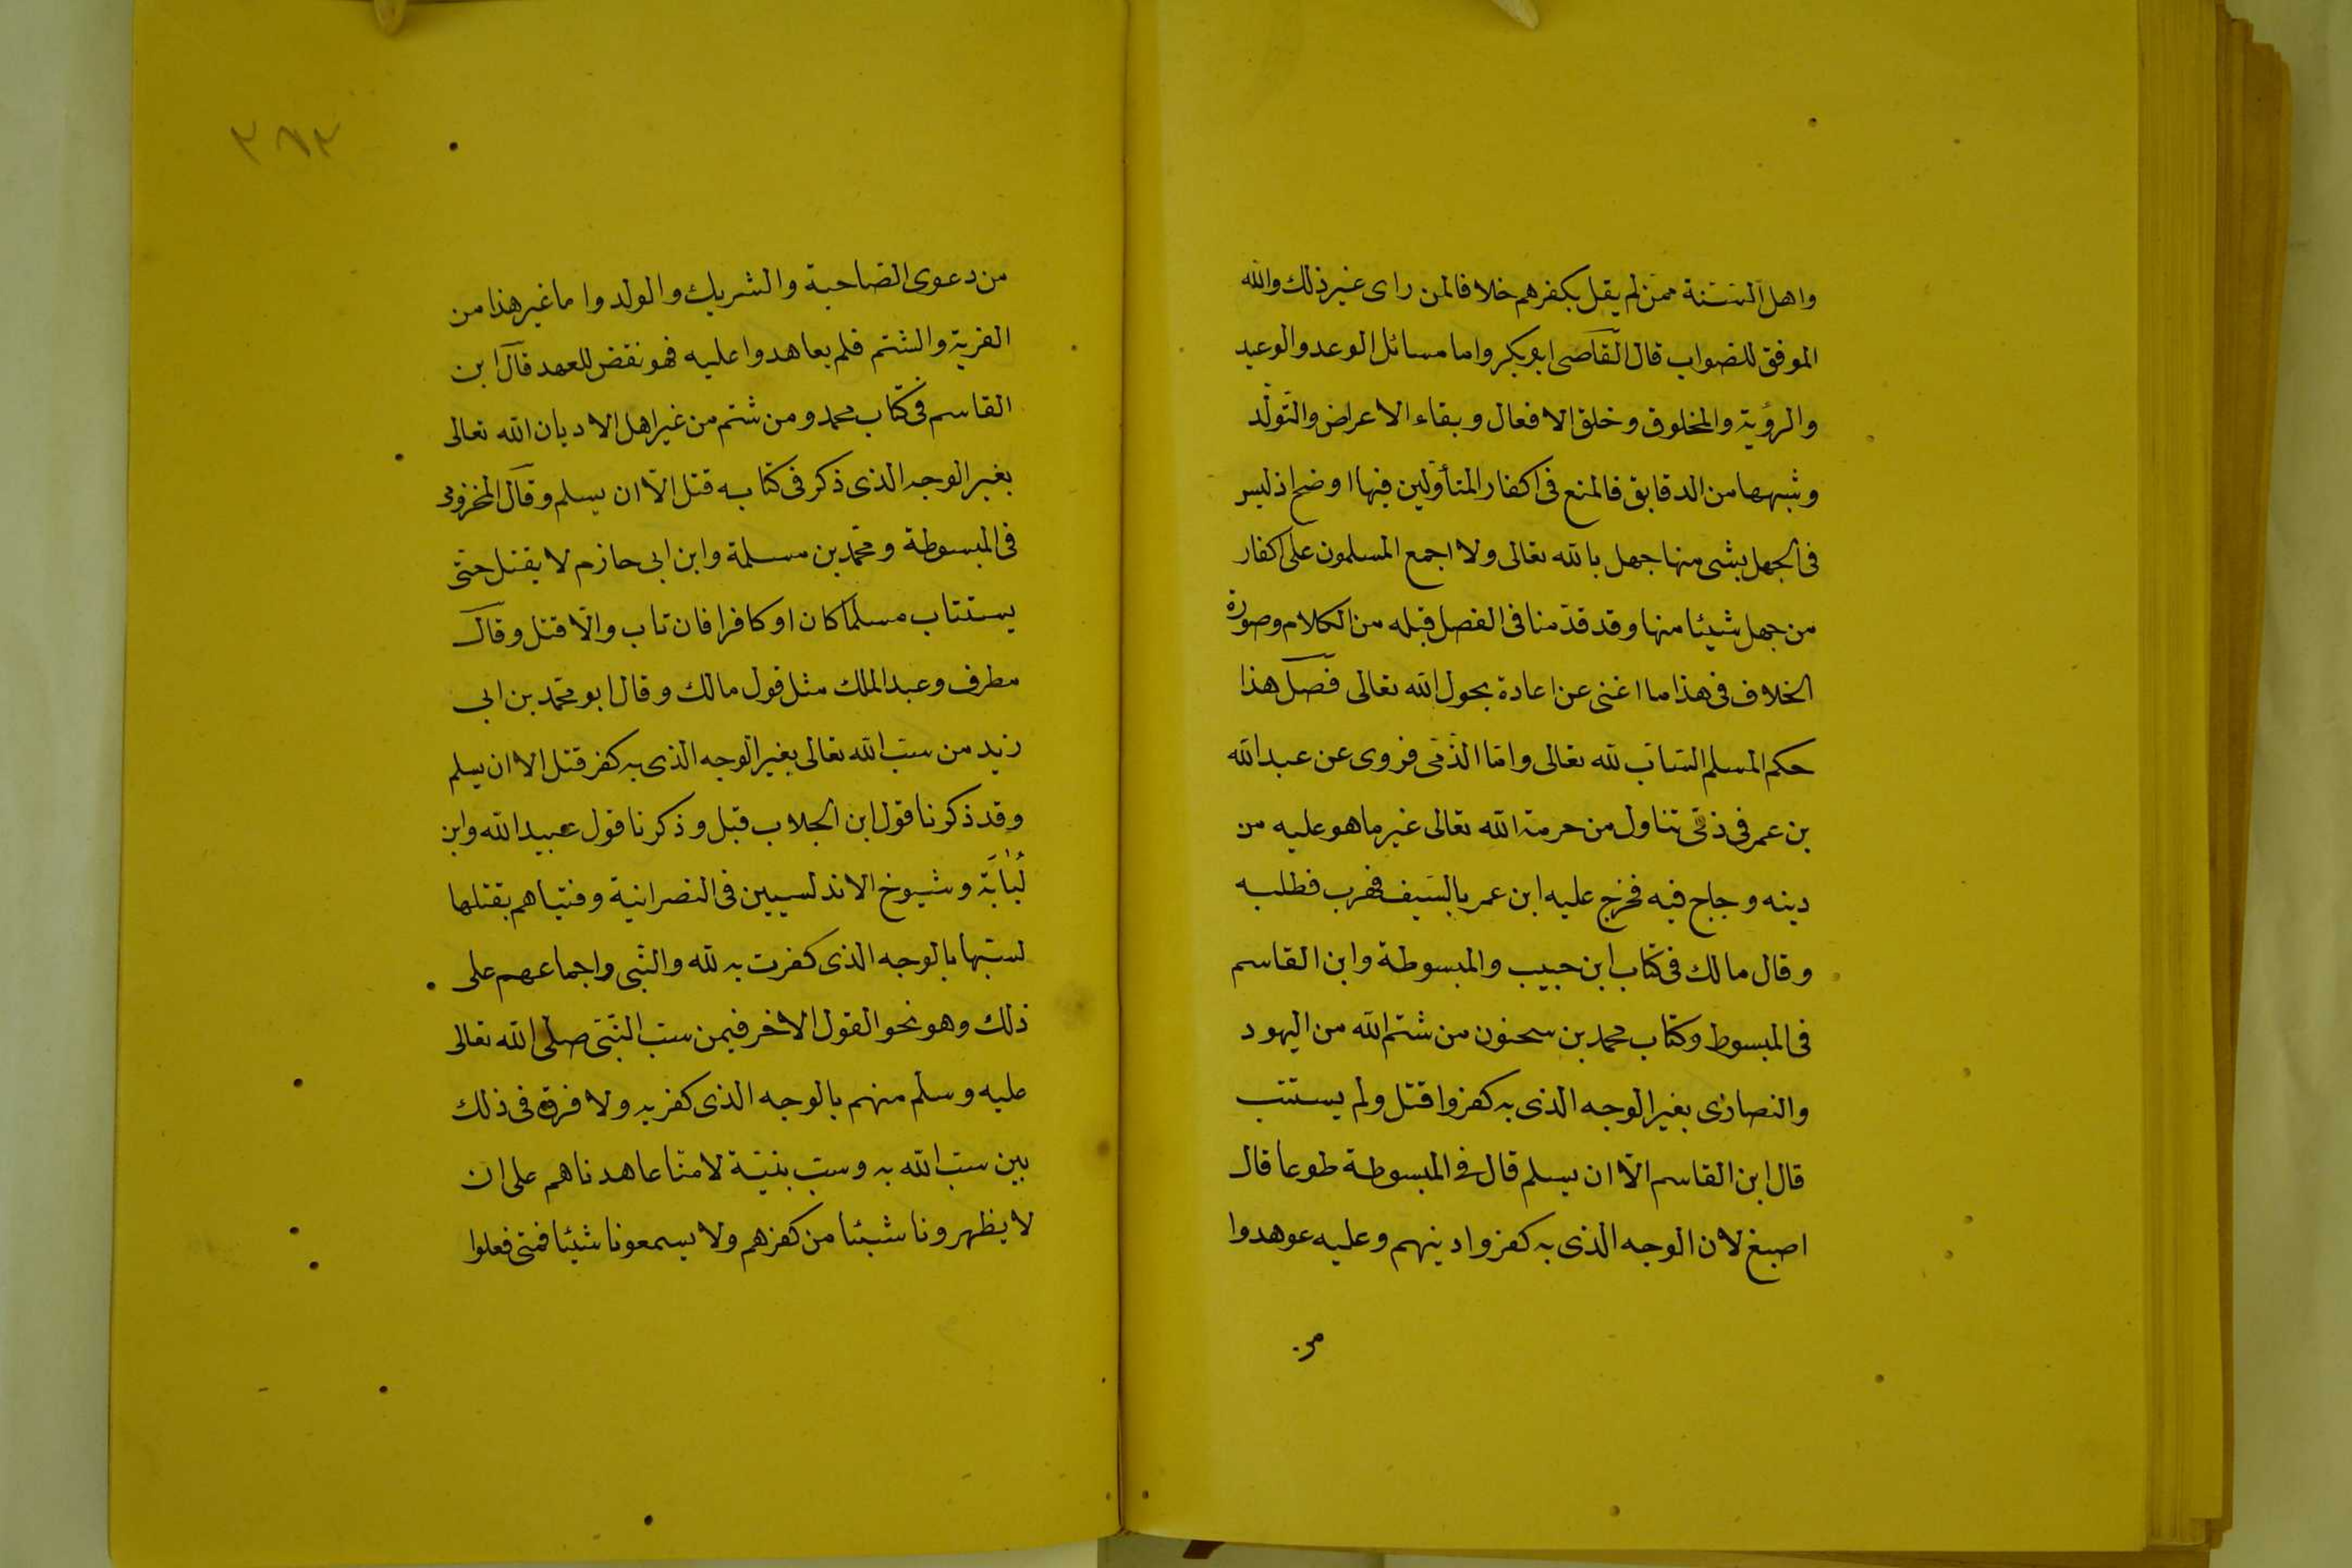 واهل السّنة ممّن لم يقل بكفرهم خلافا لمن راى غير ذلك والله
الموفق للصواب قال القاضى ابو بكر واما مسائل الوعد والوعيد
والرؤية والمخلوق وخلق الافعال وبقاء الاعراض والتّولّد
وشبهها من الدقايق فالمنع فى اكفار المتأولين فيها اوضح اذ ليس
فى الجهل بشى منها جهل بالله تعالى ولا اجمع المسلمون على اكفار
من جهل شيئا منها وقد قدّمنا فى الفصل قبله من الكلام وصورة
الخلاف فى هذا ما اغنى عن اعادة بحول الله تعالى فصل هذا
حكم المسلم السّابّ لله تعالى وامّا الذّمّى فروى عن عبد الله
بن عمر فى ذمّى تناول من حرمة الله تعالى غير ما هو عليه من
دينه وحاج فيه فخرج عليه ابن عمر بالسّيف فهرب فطلبه
وقال مالك فى كتاب ابن حبيب والمبسوطة وابن القاسم
فى المبسوط وكتاب محمد بن سحنون من شتم الله من اليهود
والنصارى بغير الوجه الذى به كفروا قتل ولم يستتب
قال ابن القاسم الّا ان يسلم قال فى المبسوطة طوعا قال
اصبغ لان الوجه الذى به كفروا دينهم وعليه عوهدوا
من
٢٨٢
من دعوى الصّاحبة والشريك والولد واما غير هذا من
الفرية والشتم فلم يعاهدوا عليه فهو نقض للعهد قال ابن
القاسم فى كتاب محمد ومن شتم من غير اهل الاديان الله تعالى
بغير الوجه الذى ذكر فى كتابه قتل الّا ان يسلم وقال المخزومى
فى المبسوطة ومحمّد بن مسلمة وابن ابى حازم لا يقتل حتّى
يستتاب مسلما كان او كافرا فان تاب والّا قتل وقال
مطرف وعبد الملك مثل قول مالك وقال ابو محمّد بن ابى
زيد من سبّ الله تعالى بغير الوجه الذى به كفر قتل الا ان يسلم
وقد ذكرنا قول ابن الجلاب قبل وذكرنا قول عبيد الله وابن
لُبابَة وشيوخ الاندلسيين فى النصرانية وفتياهم بقتلها
لسبّها بالوجه الذى كفرت به لله والنّبى واجماعهم على
ذلك وهو نحو القول الاخر فيمن سبّ النّبّى صلى الله تعالى
عليه وسلم منهم بالوجه الذى كفر به ولا فرق فى ذلك
بين سبّ الله به وسبّ نبيّه لانّا عاهدناهم على ان
لا يظهروا لنا شيئا من كفرهم ولا يسمعونا شيئا فمتى فعلوا